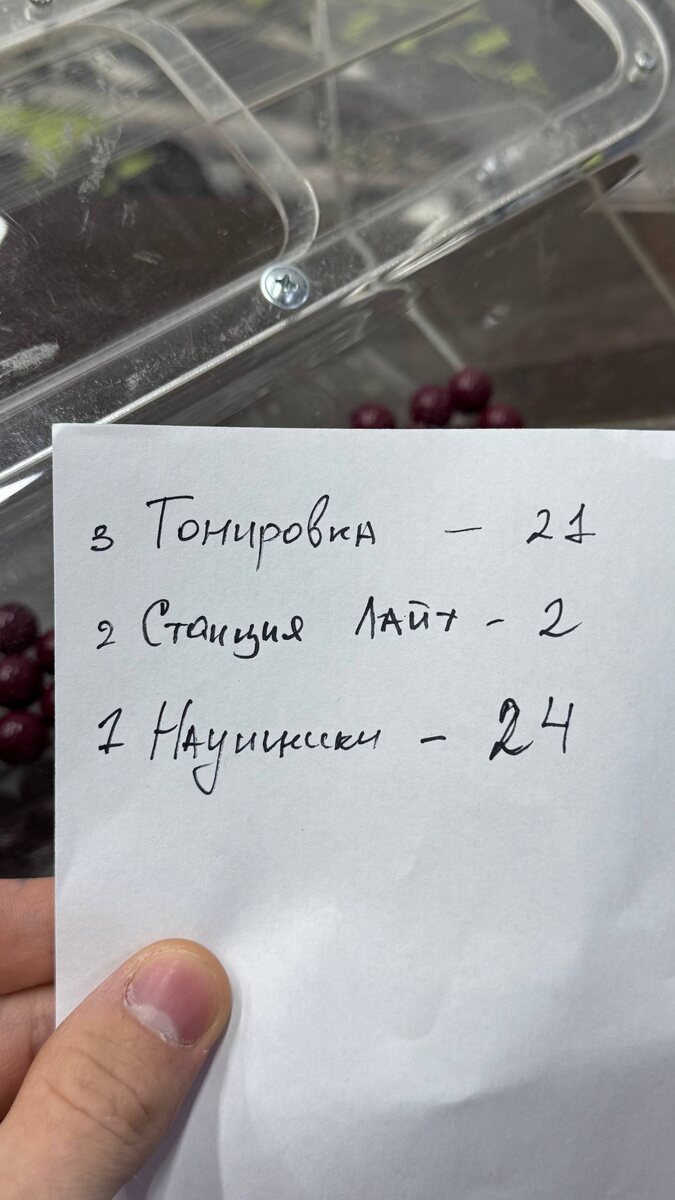 3 Тонировка - 21
2 Станция Лайт - 2
1 Наушники - 24